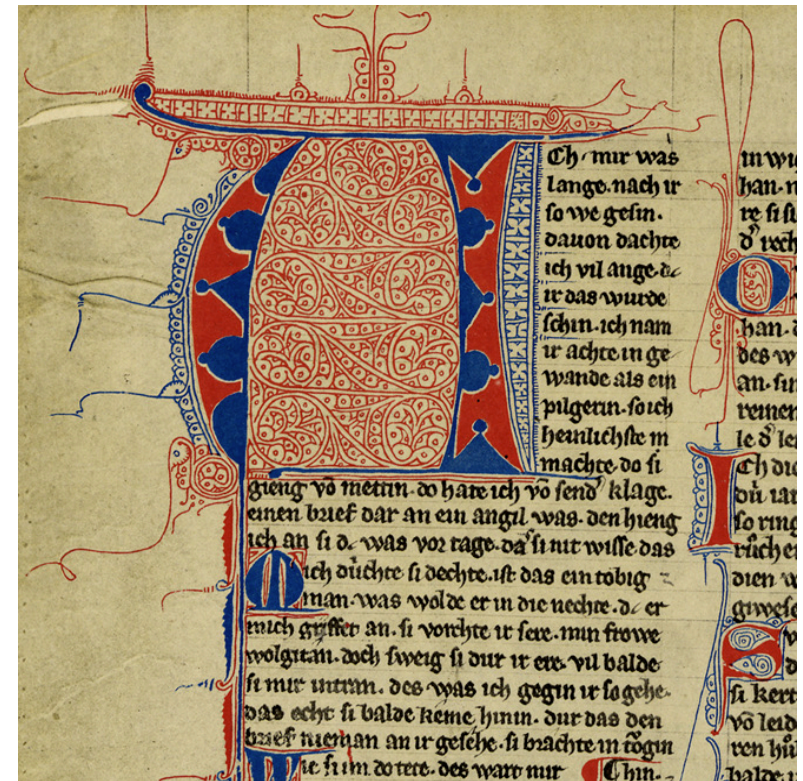 ACh· mir was
lange· nach ir
so we gesin·
dauon dachte
ich vil ange· dc
ir das wurde
schin· ich nam
ir achte in ge
wande als ein
pilgerin· so ich
heinlichste in
machte· do si
gieng võ mettin· do hate ich võ send' klage·
einen brief dar an ein angil was· den hieng
ich an si dc was vor tage· da si nit wisse das
Mich dûchte si dechte· ist das ein tobig
man· was wolde er in die nechte· dc er
mich griffet an· si vorchte ir sere· min frowe
wolgitan· doch sweig si dur ir ere· vil balde
si mir intran· des was ich gegin ir so gehe·
das echt si balde keme hinin· dur das den
brief nieman an ir gesehe· si brachte in tôgin
Wie si im do tete· des wart mir
han·
d' rech
han·
des w
an·
reinen
Ich die
dû iar
so ring
dien w
giwese
si kert
võ leid
ren hû
balde